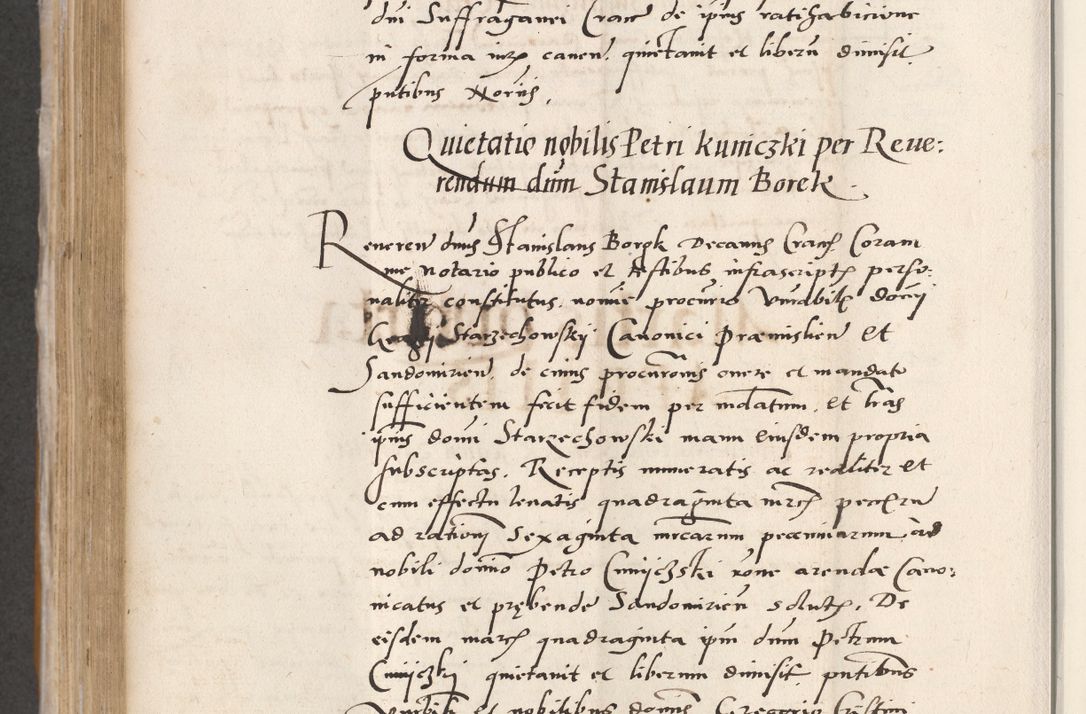 dni Suffraganei Crac de ipius ratihabicione
in forma iur canen. quietauit et liberu dimisit.
pntibus
Quietatio nobilis Petri Kuniczki per Reue:
rendum dnm Stanislaum Borek
Reueren dnus Stanislaus Borek Decanus Crac Coram
me notario publico et testibus infrascript perso:
naliter constitutus. noie procurio Vnrabil docij
Starzechowskij Canonici Præmislien Et
Sandomirien. de cuius procuronis onere et mandato
sufficientem fecit fidem per mdatum. et lras
ipius domi Starzechowski manu eiusdem propria
subscriptas. Receptis numeratis ac realiter et
cum effectu leuatis quadraginta mrch pecunru
ad rationi Sexaginta mrcarum pecuniarum ad
nobili domino Petro Cunijczski rone arendæ Cano:
nicatus et prębende Sandomirien solut. De
eisdem march quadraginta ipm dnm Petrum
Cunijczkj quietauit et liberum dimisit pntibus
et nobilibus domis Gregorio